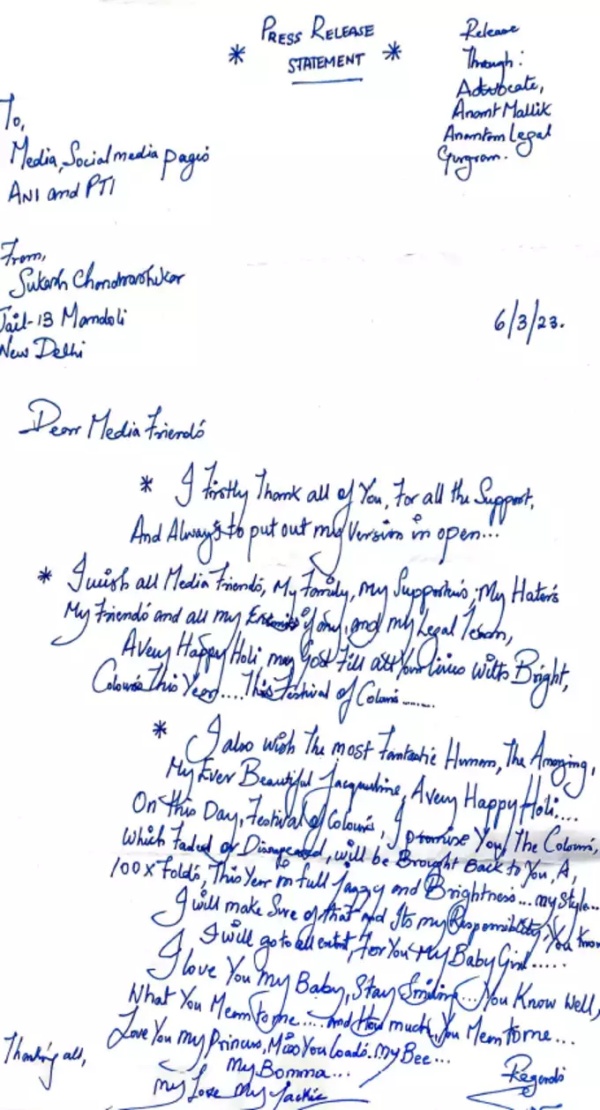 * PRESS RELEASE
STATEMENT *
Release
Through:
Advocate,
Anant Mallik
Anantam Legal
Gurgram.
To,
Media, Social media pages
ANI and PTI
From,
Sukash Chandrashekar
Jail-13 Mandoli
New Delhi
6/3/23.
Dear Media Friends
* I Firstly Thank all of You, For all the Support,
And Always to put out my Version in open...
* I wish all Media Friends, My Family, My Supporters, My Haters
My Friends and all my Enemies if any, and my Legal Team,
A Very Happy Holi, may God Fill all Your lives With Bright,
Colours This Year.... This Festival of Colours......
* I also wish The most Fantastic Human, The Amazing,
My Ever Beautiful Jacqueline, A Very Happy Holi....
On this Day, Festival of Colours, I promise You, The Colours,
Which Faded or Disappeared, will be Brought Back to You, A,
100 x Folds, This Year in full Jazzy and Brightness... my Style...
I will make Sure of that and Its my Responsibility, You Know
I will go to all extent, For You My Baby Girl.....
I love You my Baby, Stay Smiling... You Know Well,
What You Mean to me.... and How much You Mean to me...
Love You my Princess, Miss You Loads, My Bee...
My Bomma...
My Love My Jackie
Thanking all,
Regards